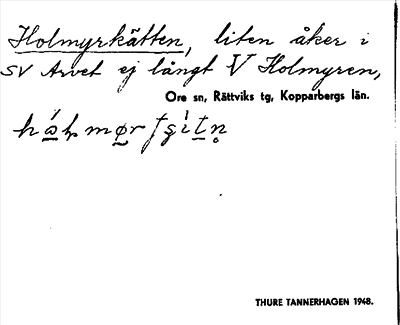 Holmyrkätten, liten åker i
SV Arvet ej långt V Holmyren,
Ore sn, Rättviks tg, Kopparbergs län.
THURE TANNERHAGEN 1948.